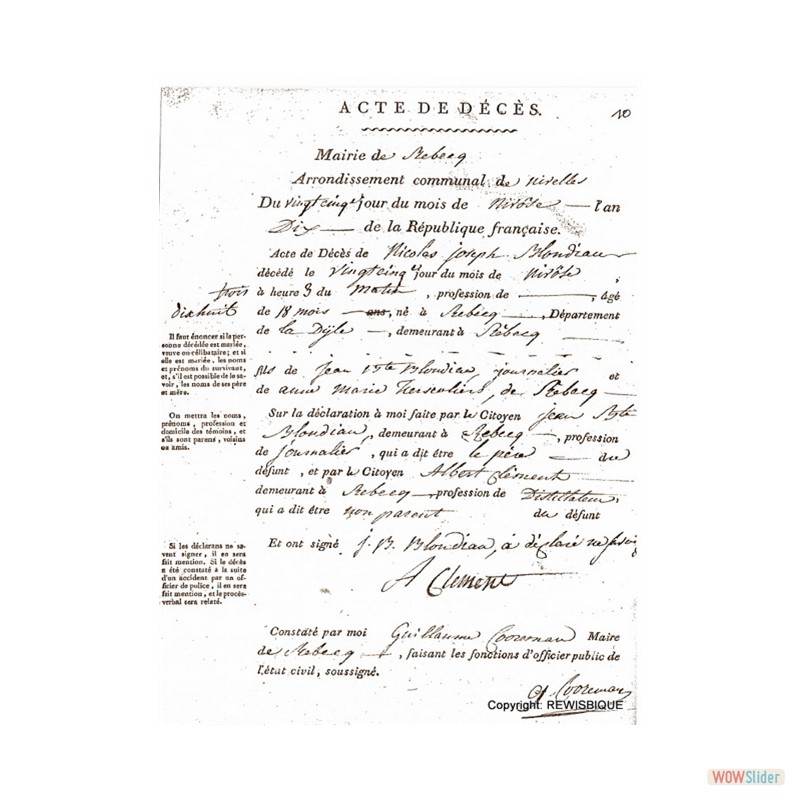 ACTE DE DÉCÈS.
10
Mairie de Rebecq
Arrondissement communal de nivelles
Du vingtcinq jour du mois de Nivôse l'an
Dix de la République française.
Acte de Décès de Nicolas joseph Blondiau
décédé le vingtcinq jour du mois de nivôse
trois
à heure 3 du matin, profession de , âgé
dixhuit
de 18 mois ans, né à Rebecq, Département
de la Dijle, demeurant à Rebecq
fils de jean Bte Blondiau, journalier et
de anne Marie , de Rebecq
Sur la déclaration à moi faite par le Citoyen jean Bte
Blondiau, demeurant à Rebecq, profession
de journalier, qui a dit être le père du
défunt, et par le Citoyen Albert Clément
demeurant à Rebecq, profession de Distillateur,
qui a dit être non parent du défunt
Et ont signé j. B. Blondiau, a déclaré ne
A Clement
Constaté par moi Guillaume Cooreman Maire
de Rebecq, faisant les fonctions d'officier public de
l'état civil, soussigné.
G. Cooreman
Il faut énoncer si la per-
sonne décédée est mariée,
veuve ou célibataire; et si
elle est mariée, les noms
et prénoms du survivant,
et, s'il est possible de le sa-
voir, les noms de ses père
et mère.
On mettra les noms,
prénoms, profession et
domicile des témoins, et
s'ils sont parens, voisins
ou amis.
Si les déclarans ne sa-
vent signer, il en sera
fait mention. Si le décès
a été constaté à la suite
d'un accident par un of-
ficier de police, il en sera
fait mention, et le procès-
verbal sera relaté.
Copyright: REWISBIQUE
WOWSlider